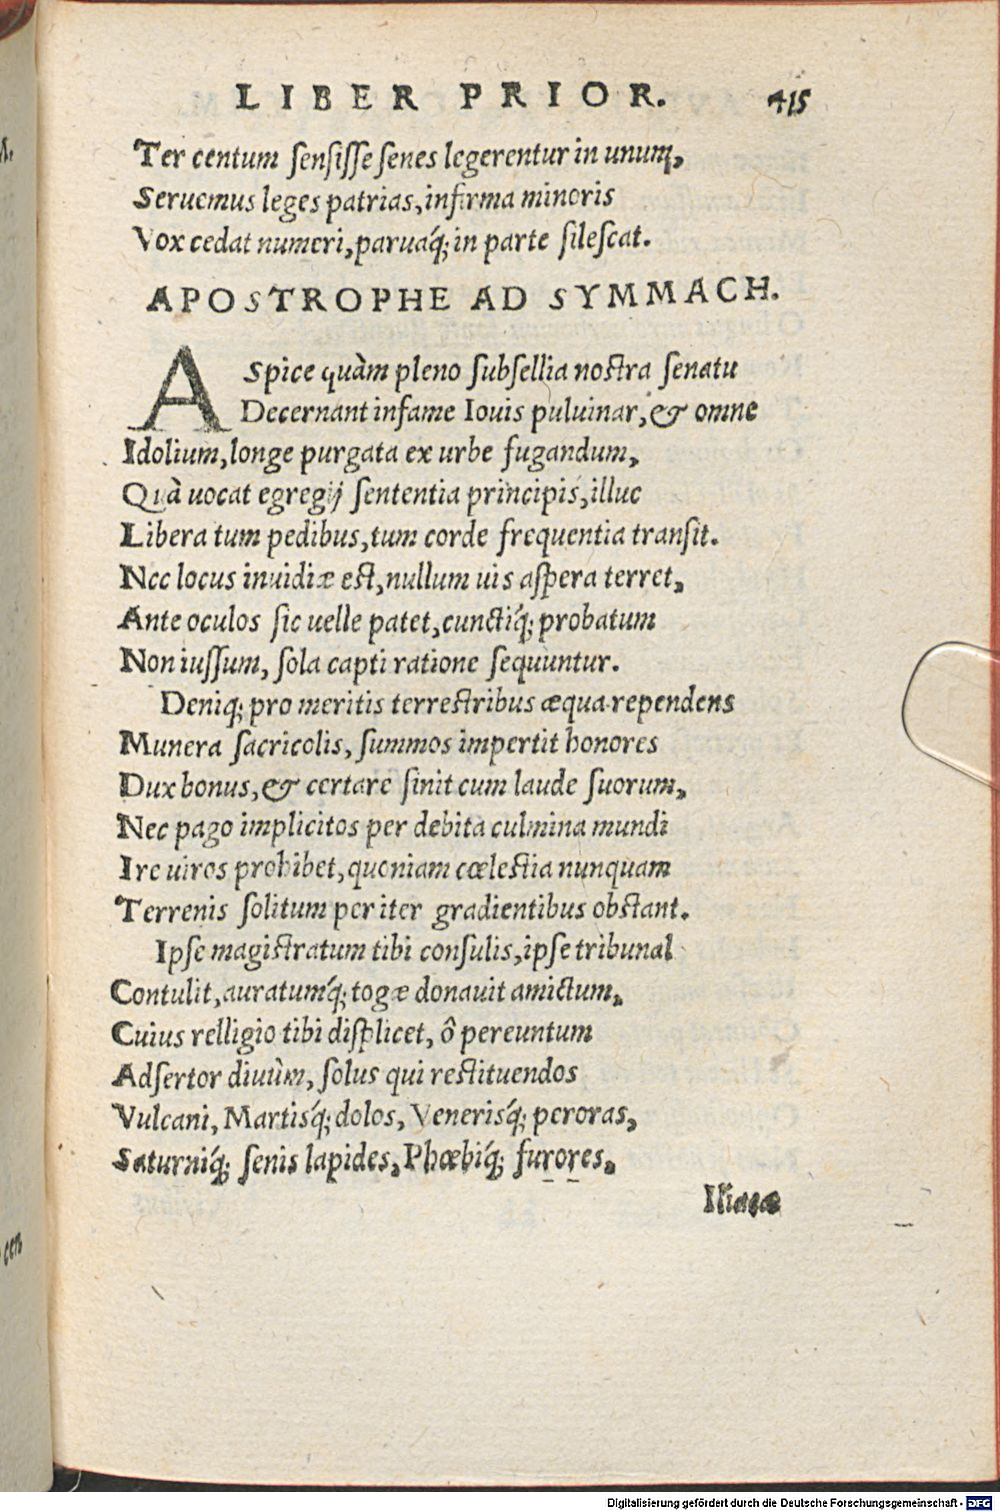 LIBER PRIOR. 415
Ter centum ſenſiſſe ſenes legerentur in unum,
Seruemus leges patrias, infirma minoris
Vox cedat numeri, paruaq́; in parte ſileſcat.
APOSTROPHE AD SYMMACH.
ASpice quàm pleno ſubſellia noſtra ſenatu
Decernant infame Iouis puluinar, & omne
Idolium, longe purgata ex urbe fugandum,
Quà uocat egregij ſententia principis, illuc
Libera tum pedibus, tum corde frequentia tranſit.
Nec locus inuidiæ eſt, nullum uis aſpera terret,
Ante oculos ſic uelle patet, cunctiq́; probatum
Non iuſſum, ſola capti ratione ſequuntur.
Deniq; pro meritis terreſtribus æqua rependens
Munera ſacricolis, ſummos impertit honores
Dux bonus, & certare ſinit cum laude ſuorum,
Nec pago implicitos per debita culmina mundi
Ire uiros prohibet, quoniam cœleſtia nunquam
Terrenis ſolitum per iter gradientibus obſtant.
Ipſe magiſtratum tibi conſulis, ipſe tribunal
Contulit, auratumq́; togæ donauit amictum,
Cuius relligio tibi diſplicet, ô pereuntum
Adſertor diuûm, ſolus qui reſtituendos
Vulcani, Martisq́; dolos, Venerisq́; peroras,
Saturniq́; ſenis lapides, Phœbiq́; furores,
Iliacæ
Digitalisierung gefördert durch die Deutsche Forschungsgemeinschaft - DFG